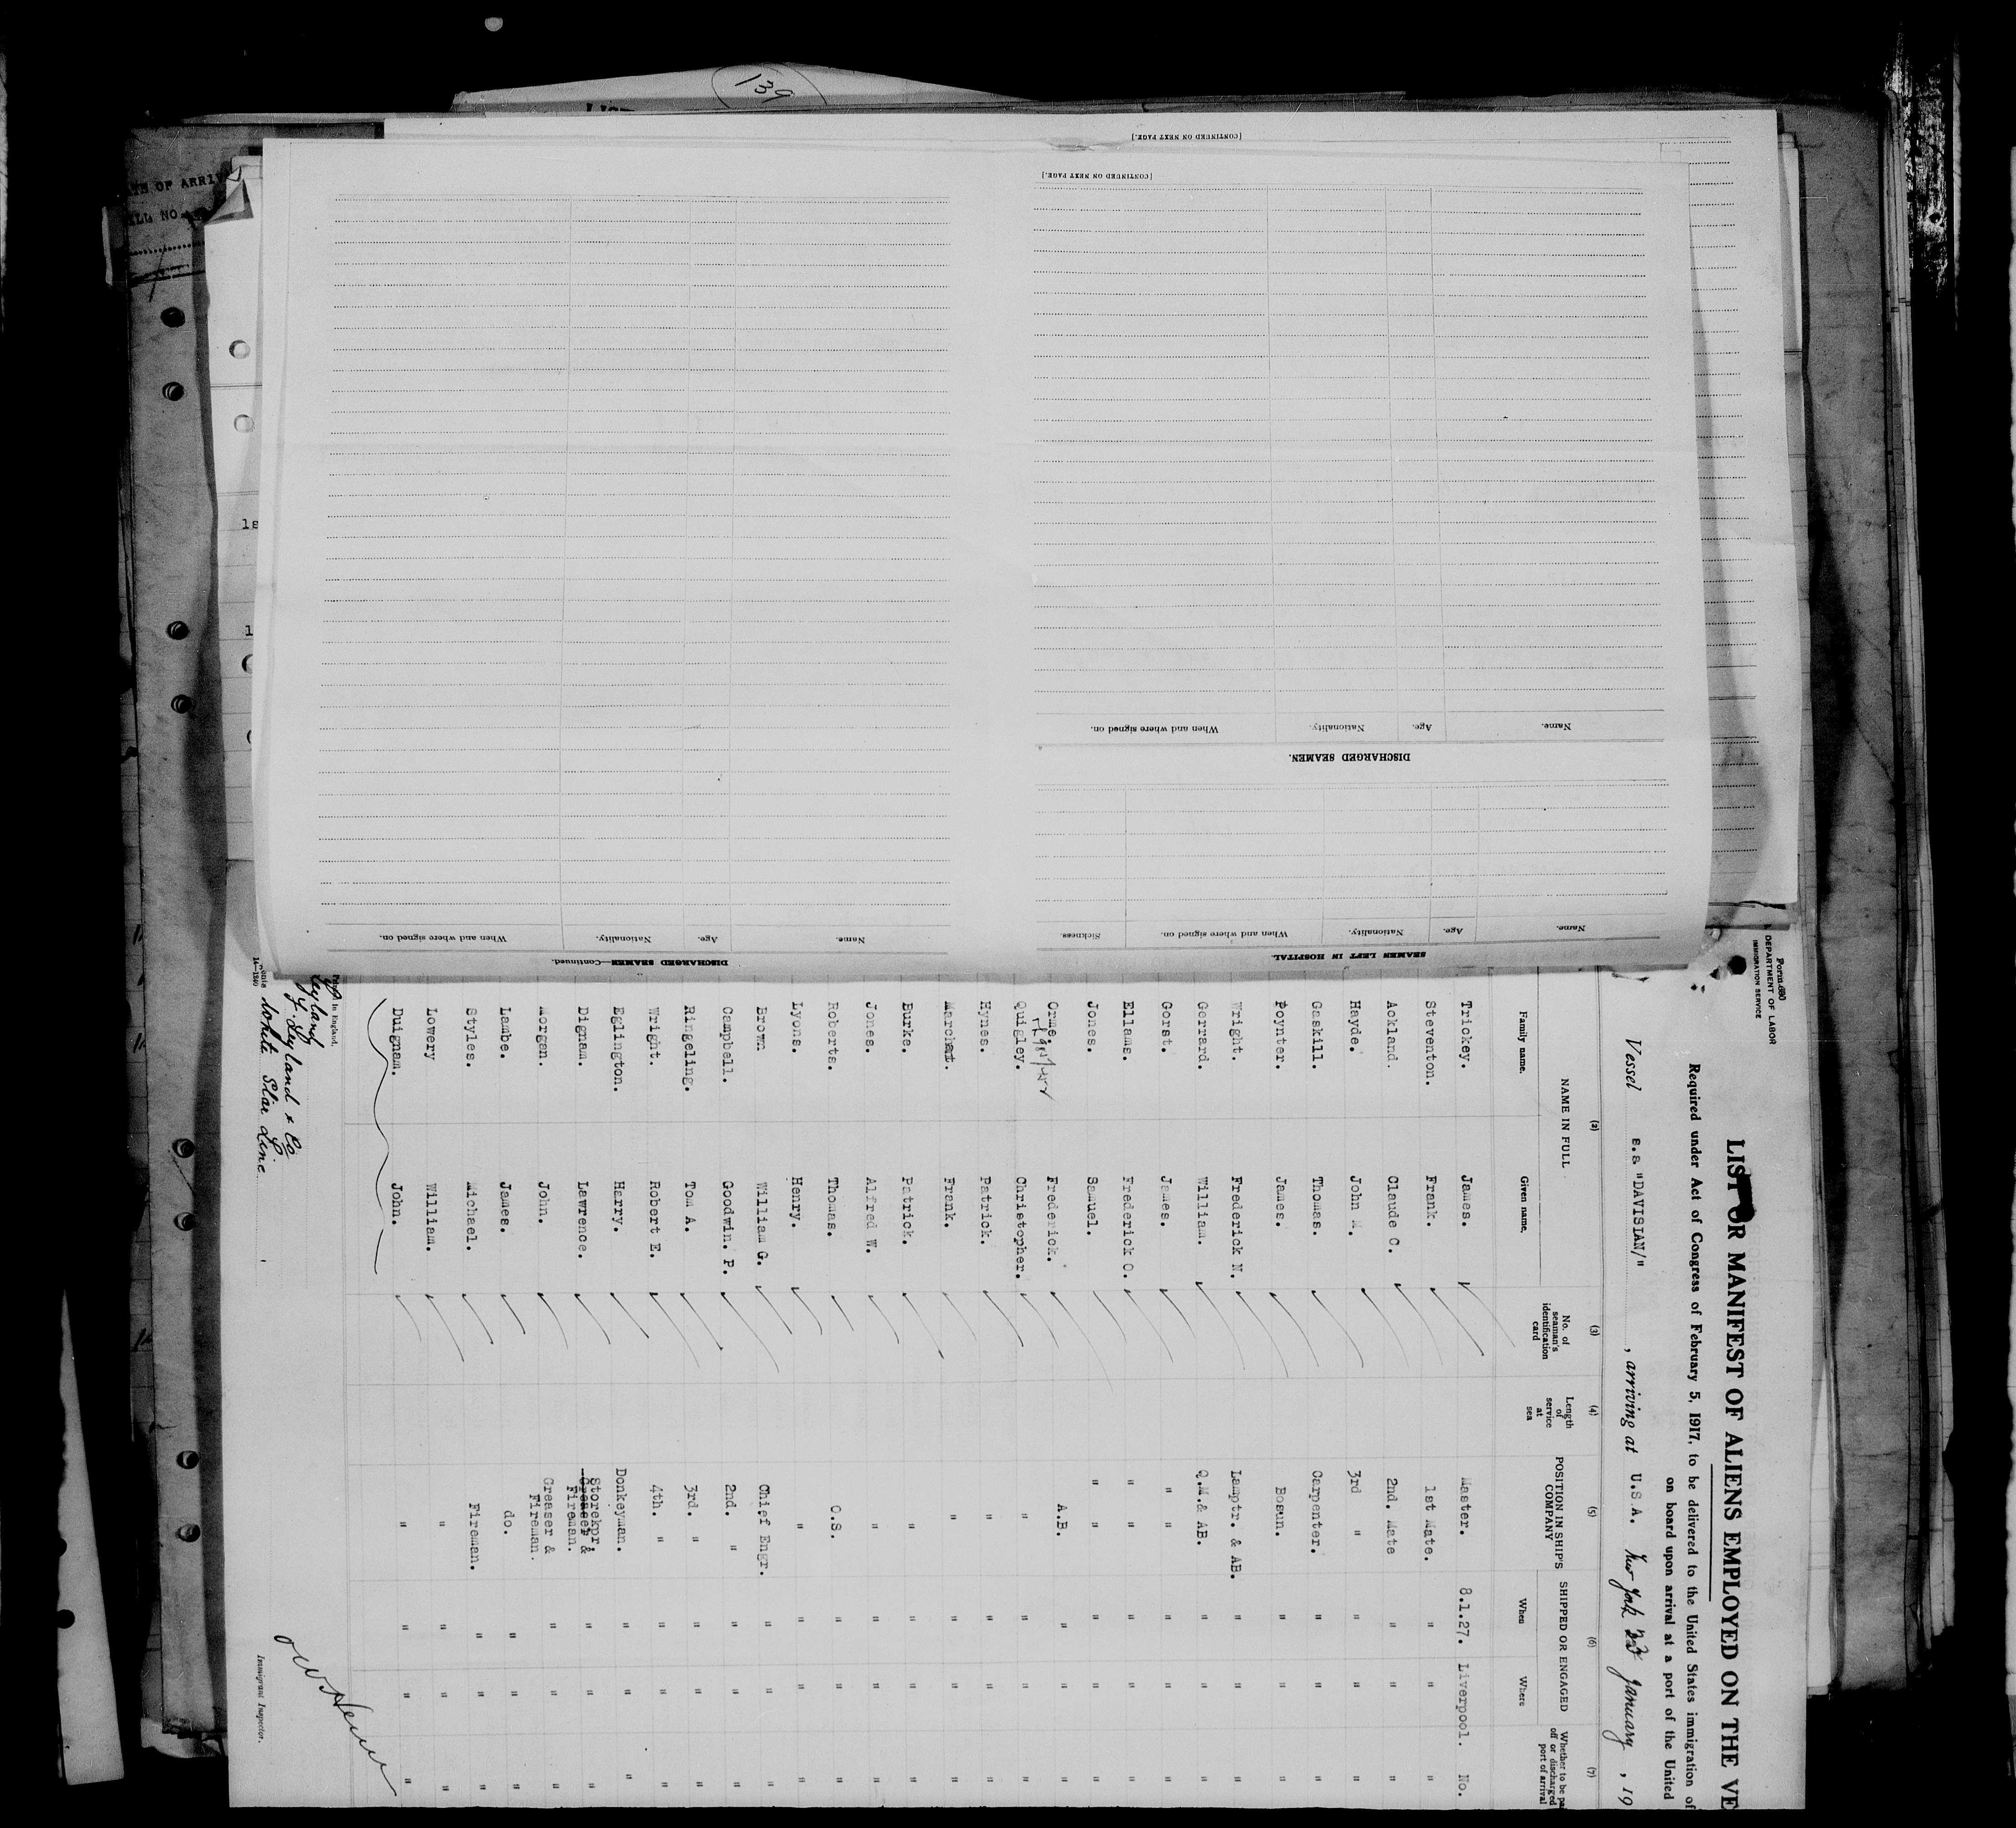 139
[CONTINUED ON NEXT PAGE.]
[CONTINUED ON NEXT PAGE.]
OF ARRIV
LL NO
1s
1
Name. Age. Nationality. When and where signed on.
DISCHARGED SEAMEN.
Name. Age. Nationality. When and where signed on. Sickness.
SEAMEN LEFT IN HOSPITAL.
Name. Age. Nationality. When and where signed on.
DISCHARGED SEAMEN—Continued.
Form 680
DEPARTMENT OF LABOR
IMMIGRATION SERVICE
LIST OR MANIFEST OF ALIENS EMPLOYED ON THE VE
Required under Act of Congress of February 5, 1917, to be delivered to the United States immigration of
on board upon arrival at a port of the United
Vessel s.s "DAVISIAN/" , arriving at U.S.A. New York 23 January , 19
(2) (3) (4) (5) (6) (7)
NAME IN FULL No. of seaman's identification card Length of service at sea POSITION IN SHIP'S COMPANY SHIPPED OR ENGAGED Whether to be pa off or discharged port of arrival
Family name. Given name. When Where
Trickey. James. Master. 8.1.27. Liverpool. No.
Steventon. Frank. 1st Mate. " " "
Ackland. Claude C. 2nd. Mate " " "
Hayde. John M. 3rd " " " "
Gaskill. Thomas. Carpenter. " " "
Poynter. James. Bosun. " " "
Wright. Frederick N. Lamptr. & AB. " " "
Gerrard. William. Q.M.& AB. " " "
Gorst. James. " " " " "
Ellams. Frederick O. " " " " "
Jones. Samuel. " " " " "
Orme. Frederick. A.B. " " "
Quigley. Christopher. " " " "
Hynes. Patrick. " " " "
Marchat. Frank. " " " "
Burke. Patrick. " " " "
Jones. Alfred W. " " " "
Roberts. Thomas. O.S. " " "
Lyons. Henry. " " " "
Brown William G. Chief Engr. " " "
Campbell. Goodwin. P. 2nd. " " " "
Ringeling. Tom A. 3rd. " " " "
Wright. Robert E. 4th. " " " "
Eglington. Harry. Donkeyman. " " "
Dignam. Lawrence. Storekpr. Greaser & Fireman. " " "
Morgan. John. Greaser & Fireman. " " "
Lambe. James. do. " " "
Styles. Michael. Fireman. " " "
Lowery William. " " " "
Duignam. John. " " " "
in England.
Leyland
F. Leyland & Co
White Star Line
14—1240
Immigrant Inspector.